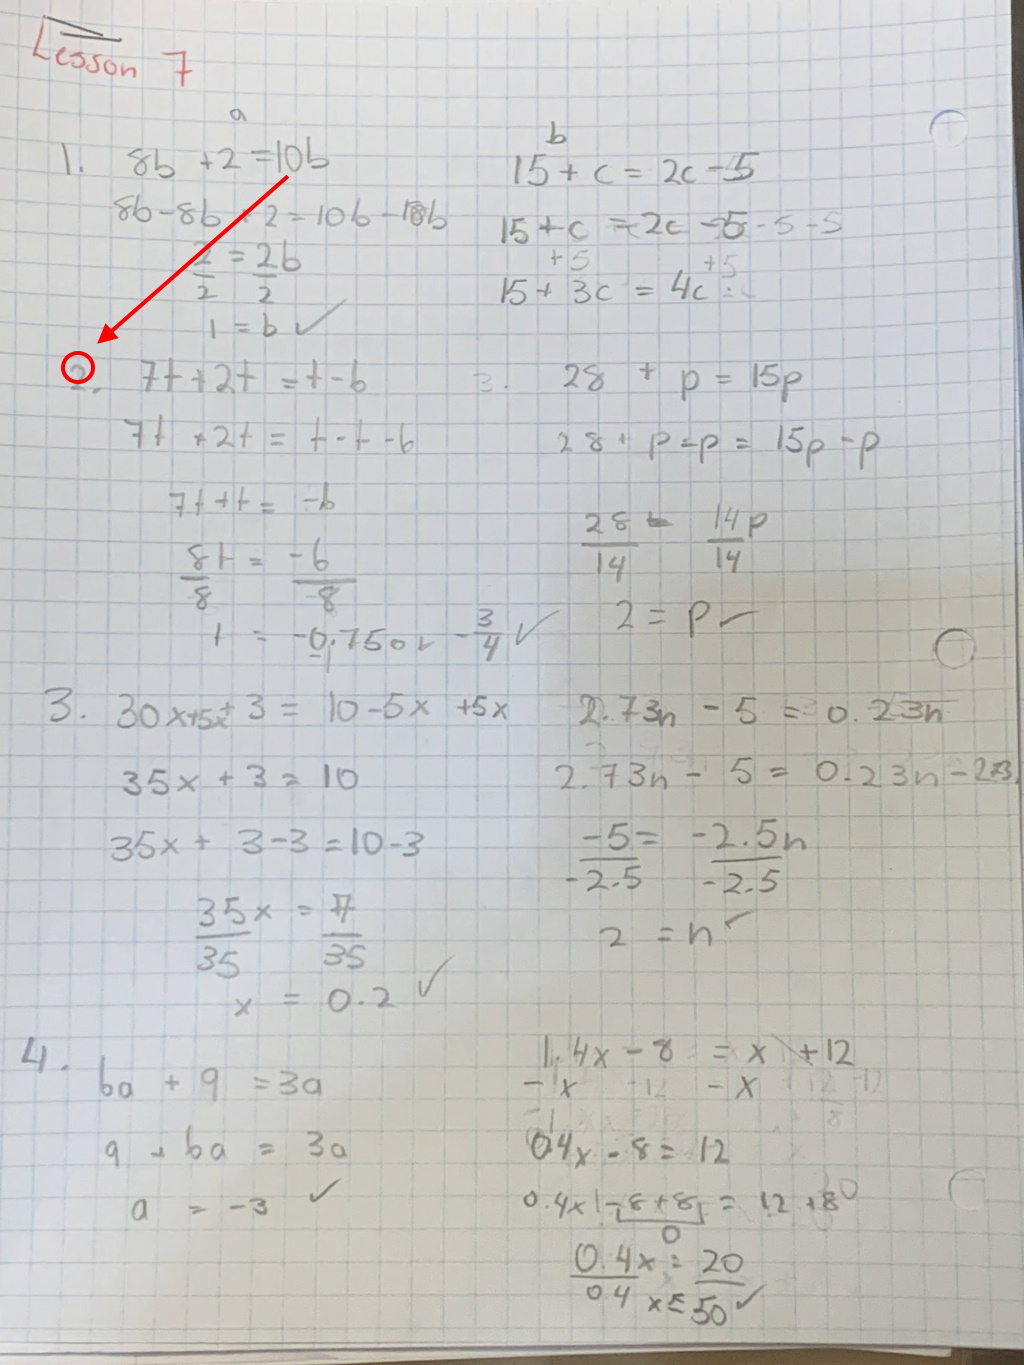 Lesson 7
a
b
1. 8b + 2 = 10b
15 + c = 2c - 5
8b - 8b + 2 = 10b - 8b
15 + c = 2c - 5 - 5 - 5
+5 +5
2 = 2b
2 2
15 + 3c = 4c
1 = b ✓
2. 7t + 2t = t - 6
3. 28 + p = 15p
7t + 2t = t - t - 6
28 + p - p = 15p - p
7t + t = -6
28 = 14p
14 14
8t = -6
8 -8
2 = p ✓
t = -0.75 or -3/4 ✓
3. 30x+5x + 3 = 10 - 5x + 5x
2.73n - 5 = 0.23n
35x + 3 = 10
2.73n - 5 = 0.23n - 2.73
35x + 3 - 3 = 10 - 3
-5 = -2.5n
-2.5 -2.5
35x = 7
35 35
2 = n ✓
x = 0.2 ✓
4. 6a + 9 = 3a
1.4x - 8 = x + 12
-1x - x
9 + 6a = 3a
0.4x - 8 = 12
a = -3 ✓
0.4x - 8 + 8 = 12 + 8
0
0.4x = 20
0.4
x = 50 ✓